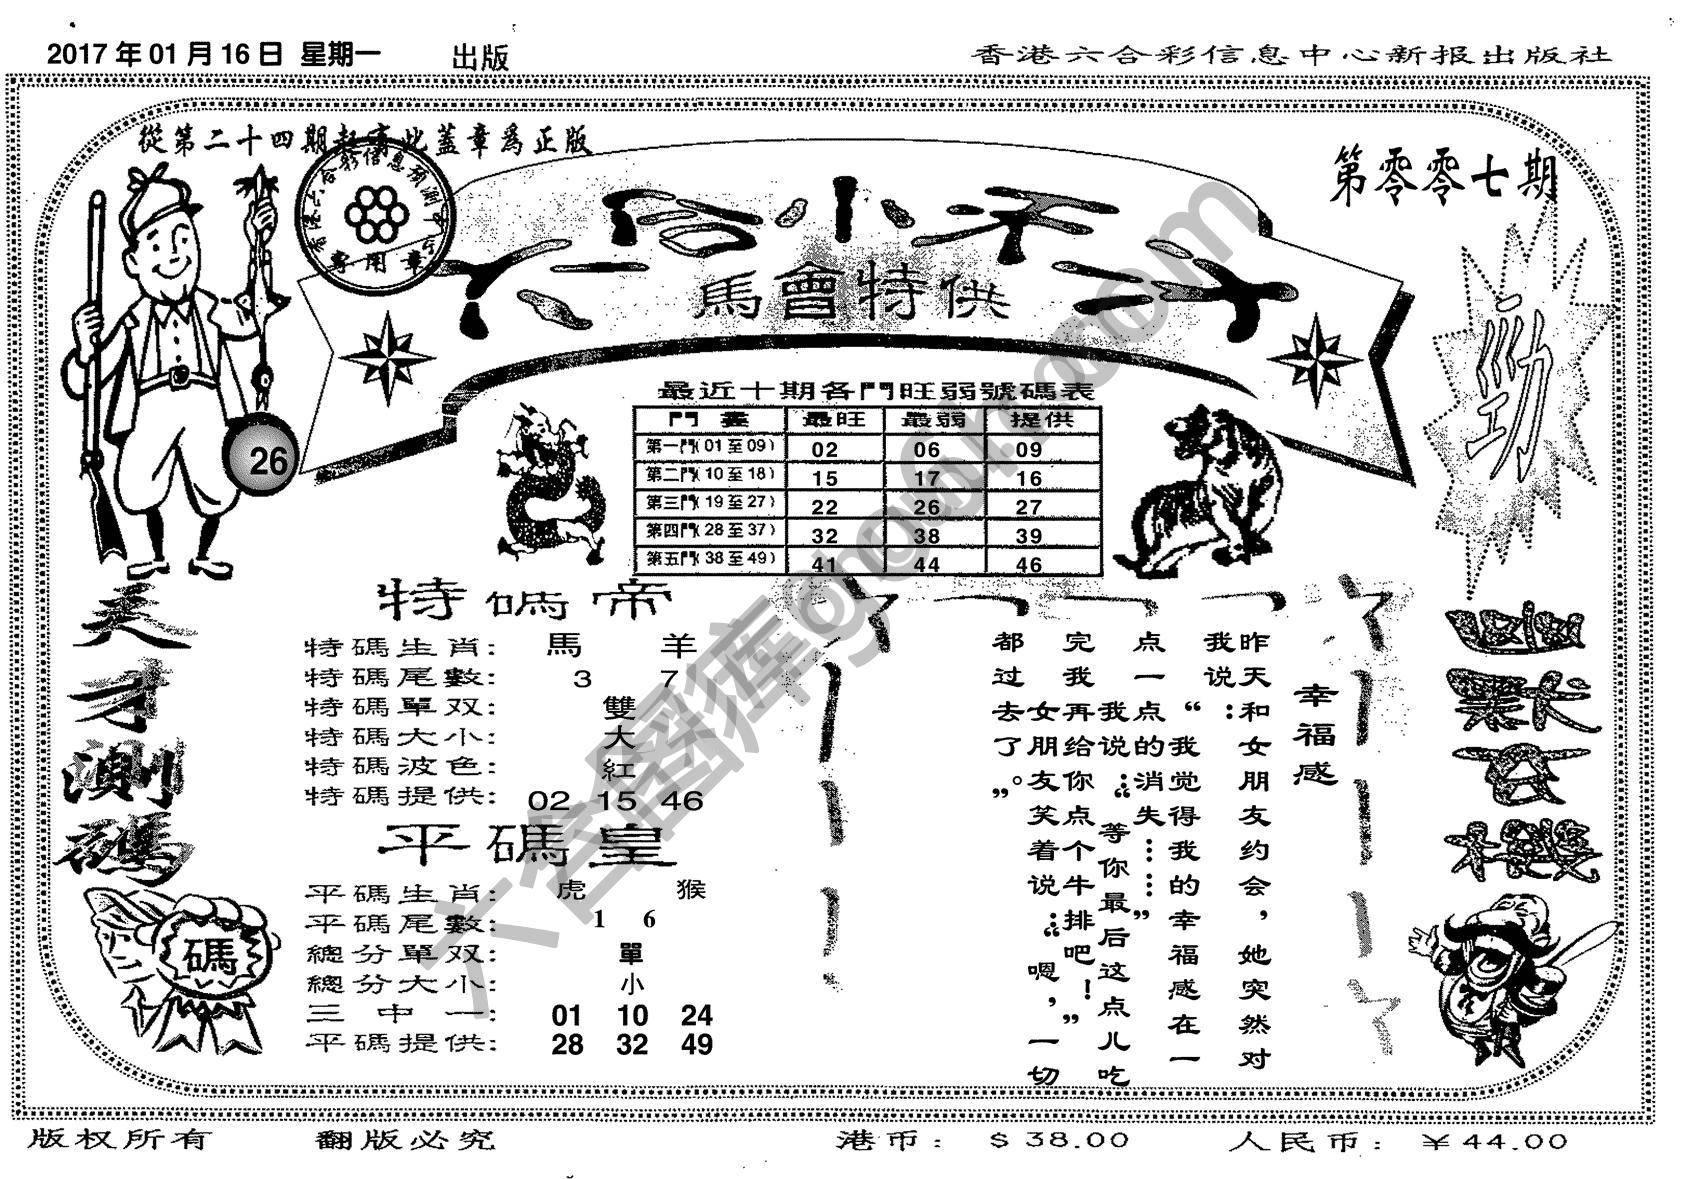 2017年01月16日 星期一 出版
香港六合彩信息中心新报出版社
從第二十四期起有此蓋章爲正版
第零零七期
專用章
馬會特供
勁
26
最近十期各門旺弱號碼表
最旺 最弱 提供
第一門(01至09) 02 06 09
第二門(10至18) 15 17 16
第三門(19至27) 22 26 27
第四門(28至37) 32 38 39
第五門(38至49) 41 44 46
天才測碼
碼
特碼帝
特碼生肖: 馬 羊
特碼尾數: 3 7
特碼單双: 雙
特碼大小: 大
特碼波色: 紅
特碼提供: 02 15 46
平碼皇
平碼生肖: 虎 猴
平碼尾數: 1 6
總分單双: 單
總分大小: 小
三中一: 01 10 24
平碼提供: 28 32 49
幸福感
昨天和女朋友约会，她突然对
我说：“我觉得我的幸福感在一
点一点的消失……”
我说：“等你最后这点儿吃
完我再给你点个牛排吧！”
女朋友笑着说：“嗯，一切
都过去了。”
版权所有 翻版必究 港币: $38.00 人民币: ￥44.00